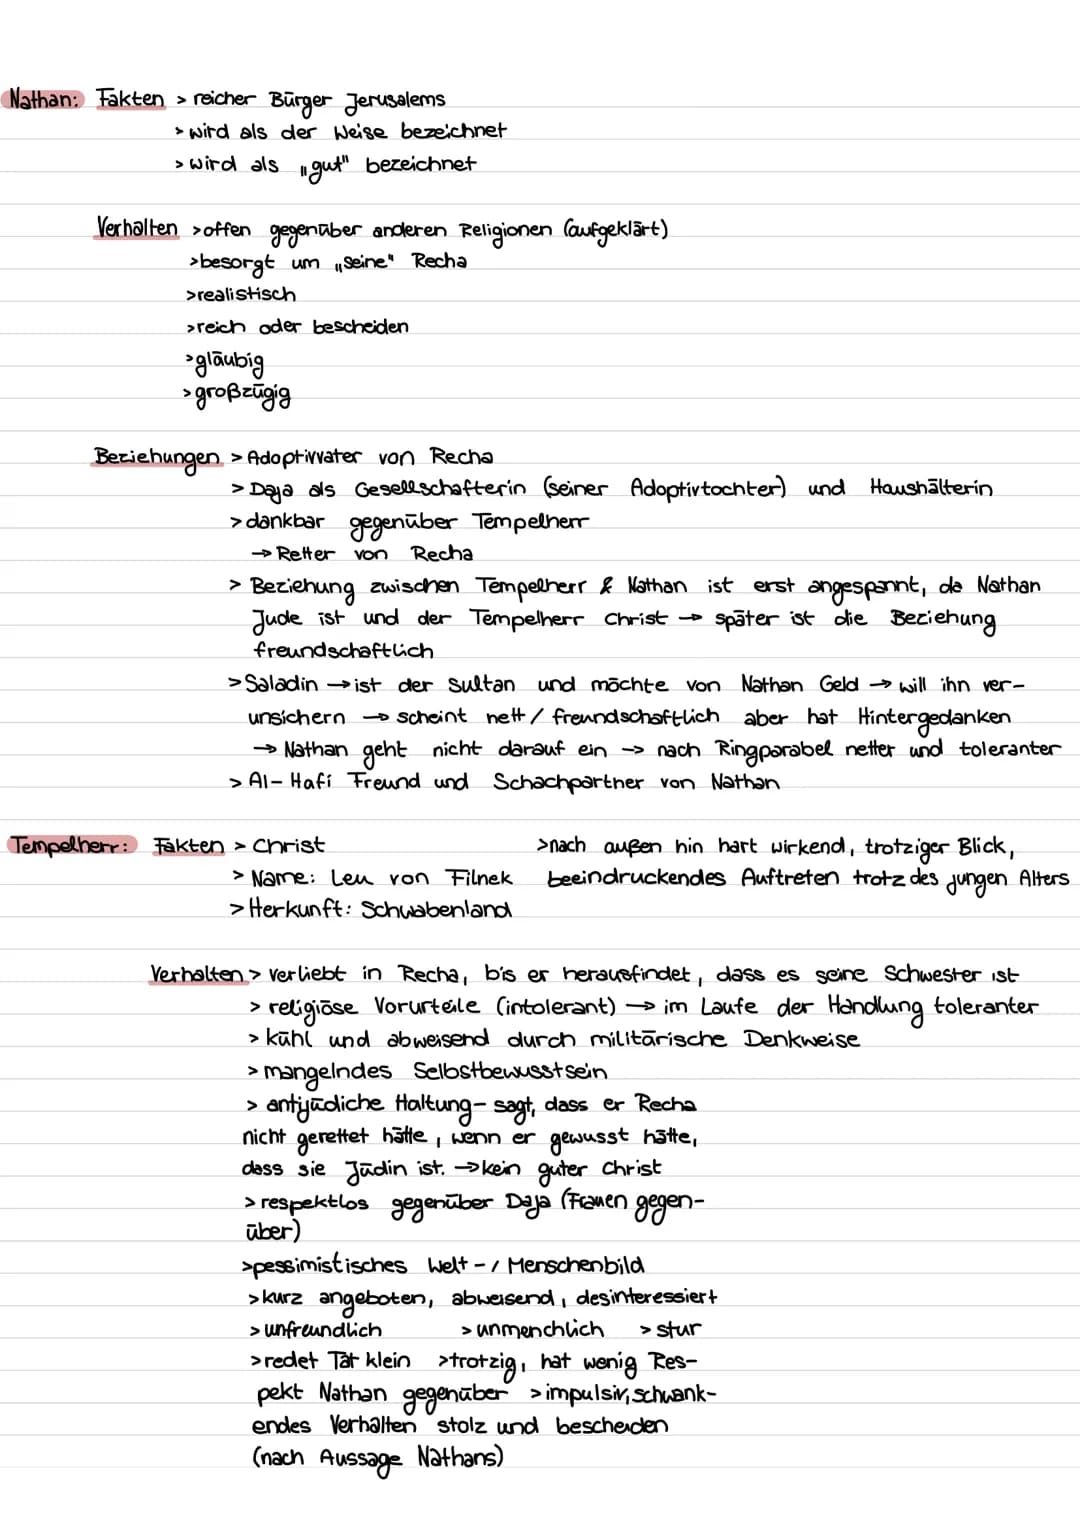 Nathan: Fakten > reicher Bürger Jerusalems
> wird als der Weise bezeichnet
> wird als „gut" bezeichnet
Verhalten > offen gegenüber anderen Religionen (aufgeklärt)
> besorgt um „seine" Recha
> realistisch
> reich oder bescheiden
> gläubig
> großzügig
Beziehungen > Adoptivvater von Recha
> Daja als Gesellschafterin (seiner Adoptivtochter) und Haushälterin
> dankbar gegenüber Tempelherr
→ Retter von Recha
> Beziehung zwischen Tempelherr & Nathan ist erst angespannt, da Nathan
Jude ist und der Tempelherr Christ → später ist die Beziehung
freundschaftlich
> Saladin → ist der Sultan und möchte von Nathan Geld → will ihn ver-
unsichern → scheint nett / freundschaftlich aber hat Hintergedanken
→ Nathan geht nicht darauf ein → nach Ringparabel netter und toleranter
> Al-Hafi Freund und Schachpartner von Nathan
Tempelherr: Fakten > Christ >nach außen hin hart wirkend, trotziger Blick,
> Name: Leu von Filnek beeindruckendes Auftreten trotz des jungen Alters
> Herkunft: Schwabenland
Verhalten > verliebt in Recha, bis er herausfindet, dass es seine Schwester ist
> religiöse Vorurteile (intolerant) → im Laufe der Handlung toleranter
> kühl und abweisend durch militärische Denkweise
> mangelndes Selbstbewusstsein
> antijüdiche Haltung - sagt, dass er Recha
nicht gerettet hätte, wenn er gewusst hätte,
dass sie Jüdin ist. → kein guter Christ
> respektlos gegenüber Daja (Frauen gegen-
über)
> pessimistisches Welt - / Menschenbild
> kurz angeboten, abweisend, desinteressiert
> unfreundlich > unmenchlich > stur
> redet Tat klein > trotzig, hat wenig Res-
pekt Nathan gegenüber > impulsiv, schwank-
endes Verhalten stolz und bescheiden
(nach Aussage Nathans)